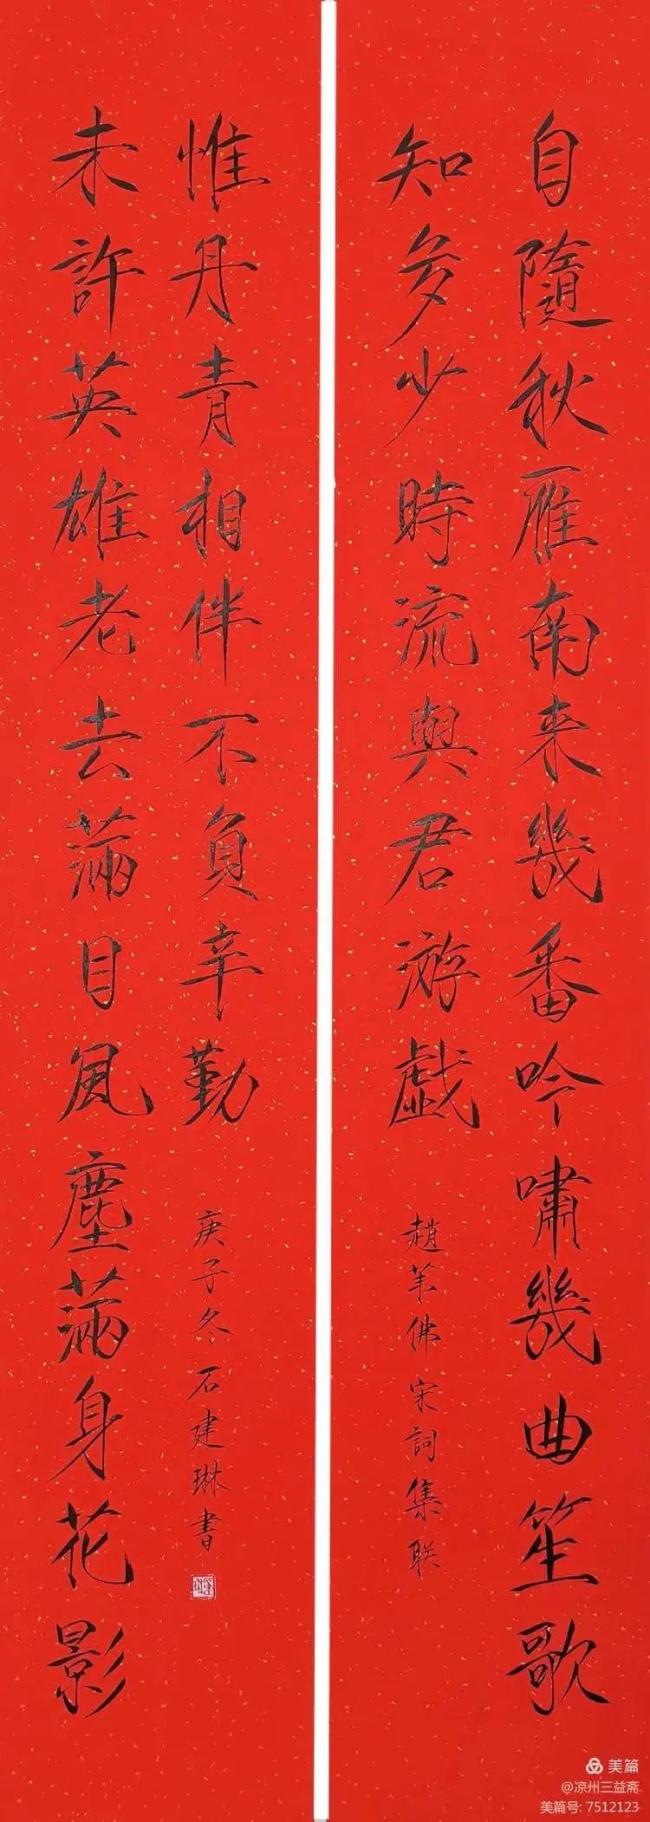 自隨秋雁南来幾番吟嘯幾曲笙歌
知多少時流與君游戱
趙 佛宋詞集联
未許英雄老去滿目風塵滿身花影
惟丹青相伴不負辛勤
庚子冬石建琳書
美篇
@凉州三益斋
美篇号: 7512123